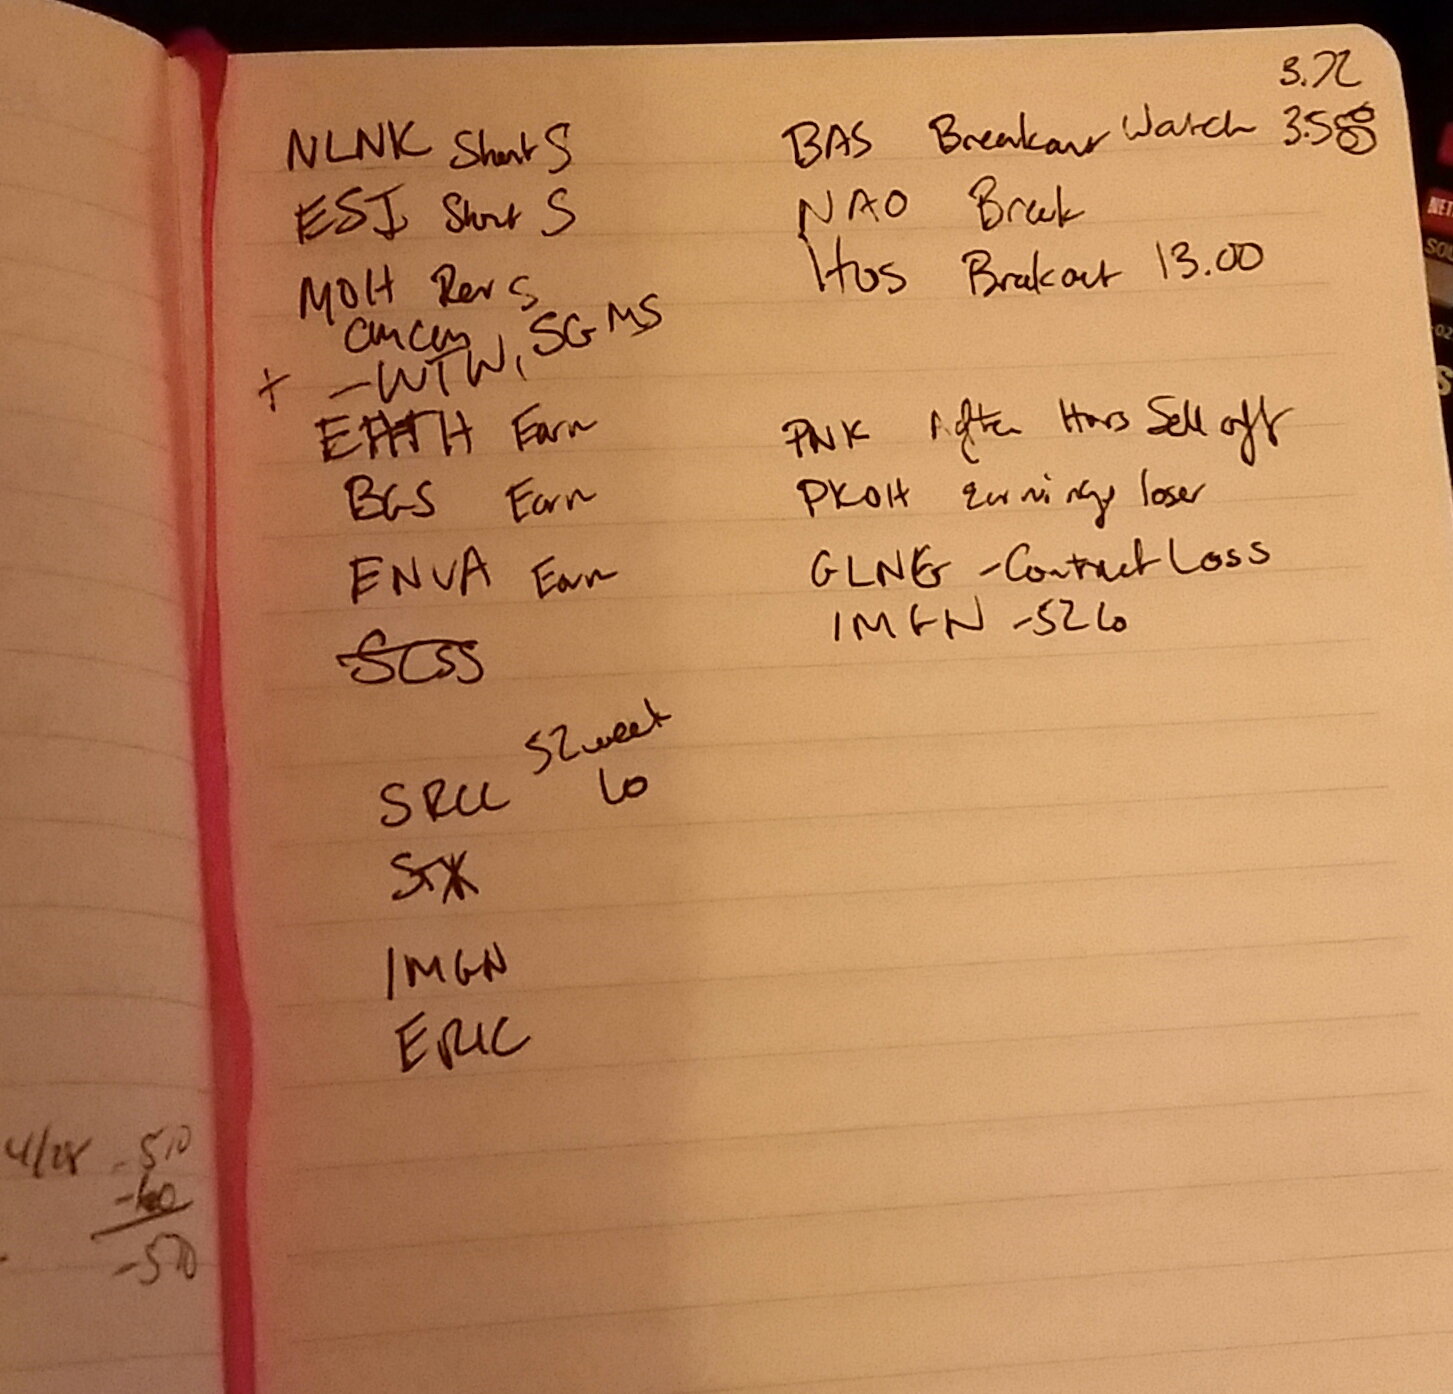 3.72
NLNK Short S
BAS Breakout Watch 3.58
ESI Short S
NAO Break
MOH Rev S
HOS Breakout 13.00
+ - WTW, SGMS
EHTH Earn
PNK After Hours Sell off
BGS Earn
PKOH earnings loser
ENVA Earn
GLNG - Contract Loss
IMGN - 52 Lo
SCSS
52 week
SRCL Lo
STX
IMGN
ERIC
4/28 -510
-60
-570
NET